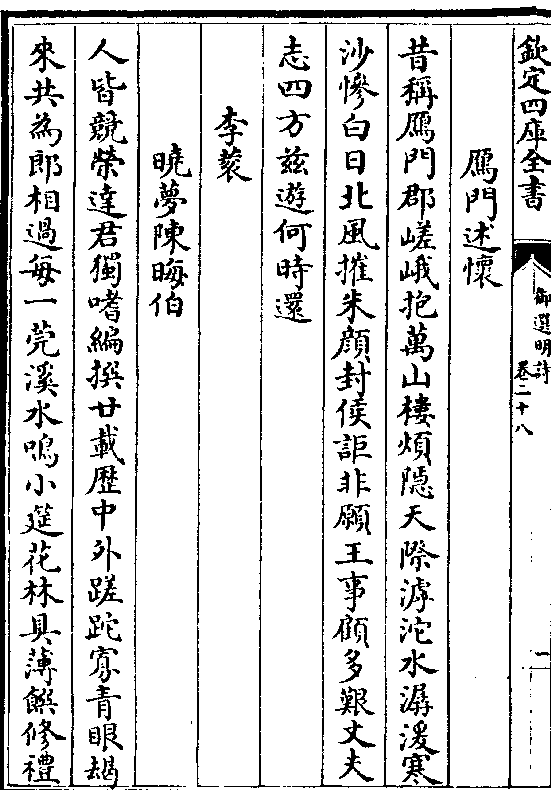 欽定四庫全書
御選明詩
卷二十八
一
鴈門述懷
昔稱鴈門郡嵯峨抱萬山樓煩隠天際滹沱水潺湲寒
沙慘白日北風摧朱顔封侯詎非願王事顧多艱丈夫
志四方兹遊何時還
李裘
曉夢陳晦伯
人皆競榮達君獨嗜編撰廿載歴中外蹉跎寡青眼朅
來共為郎相過每一莞溪水鳴小筵花林具薄饌修禮